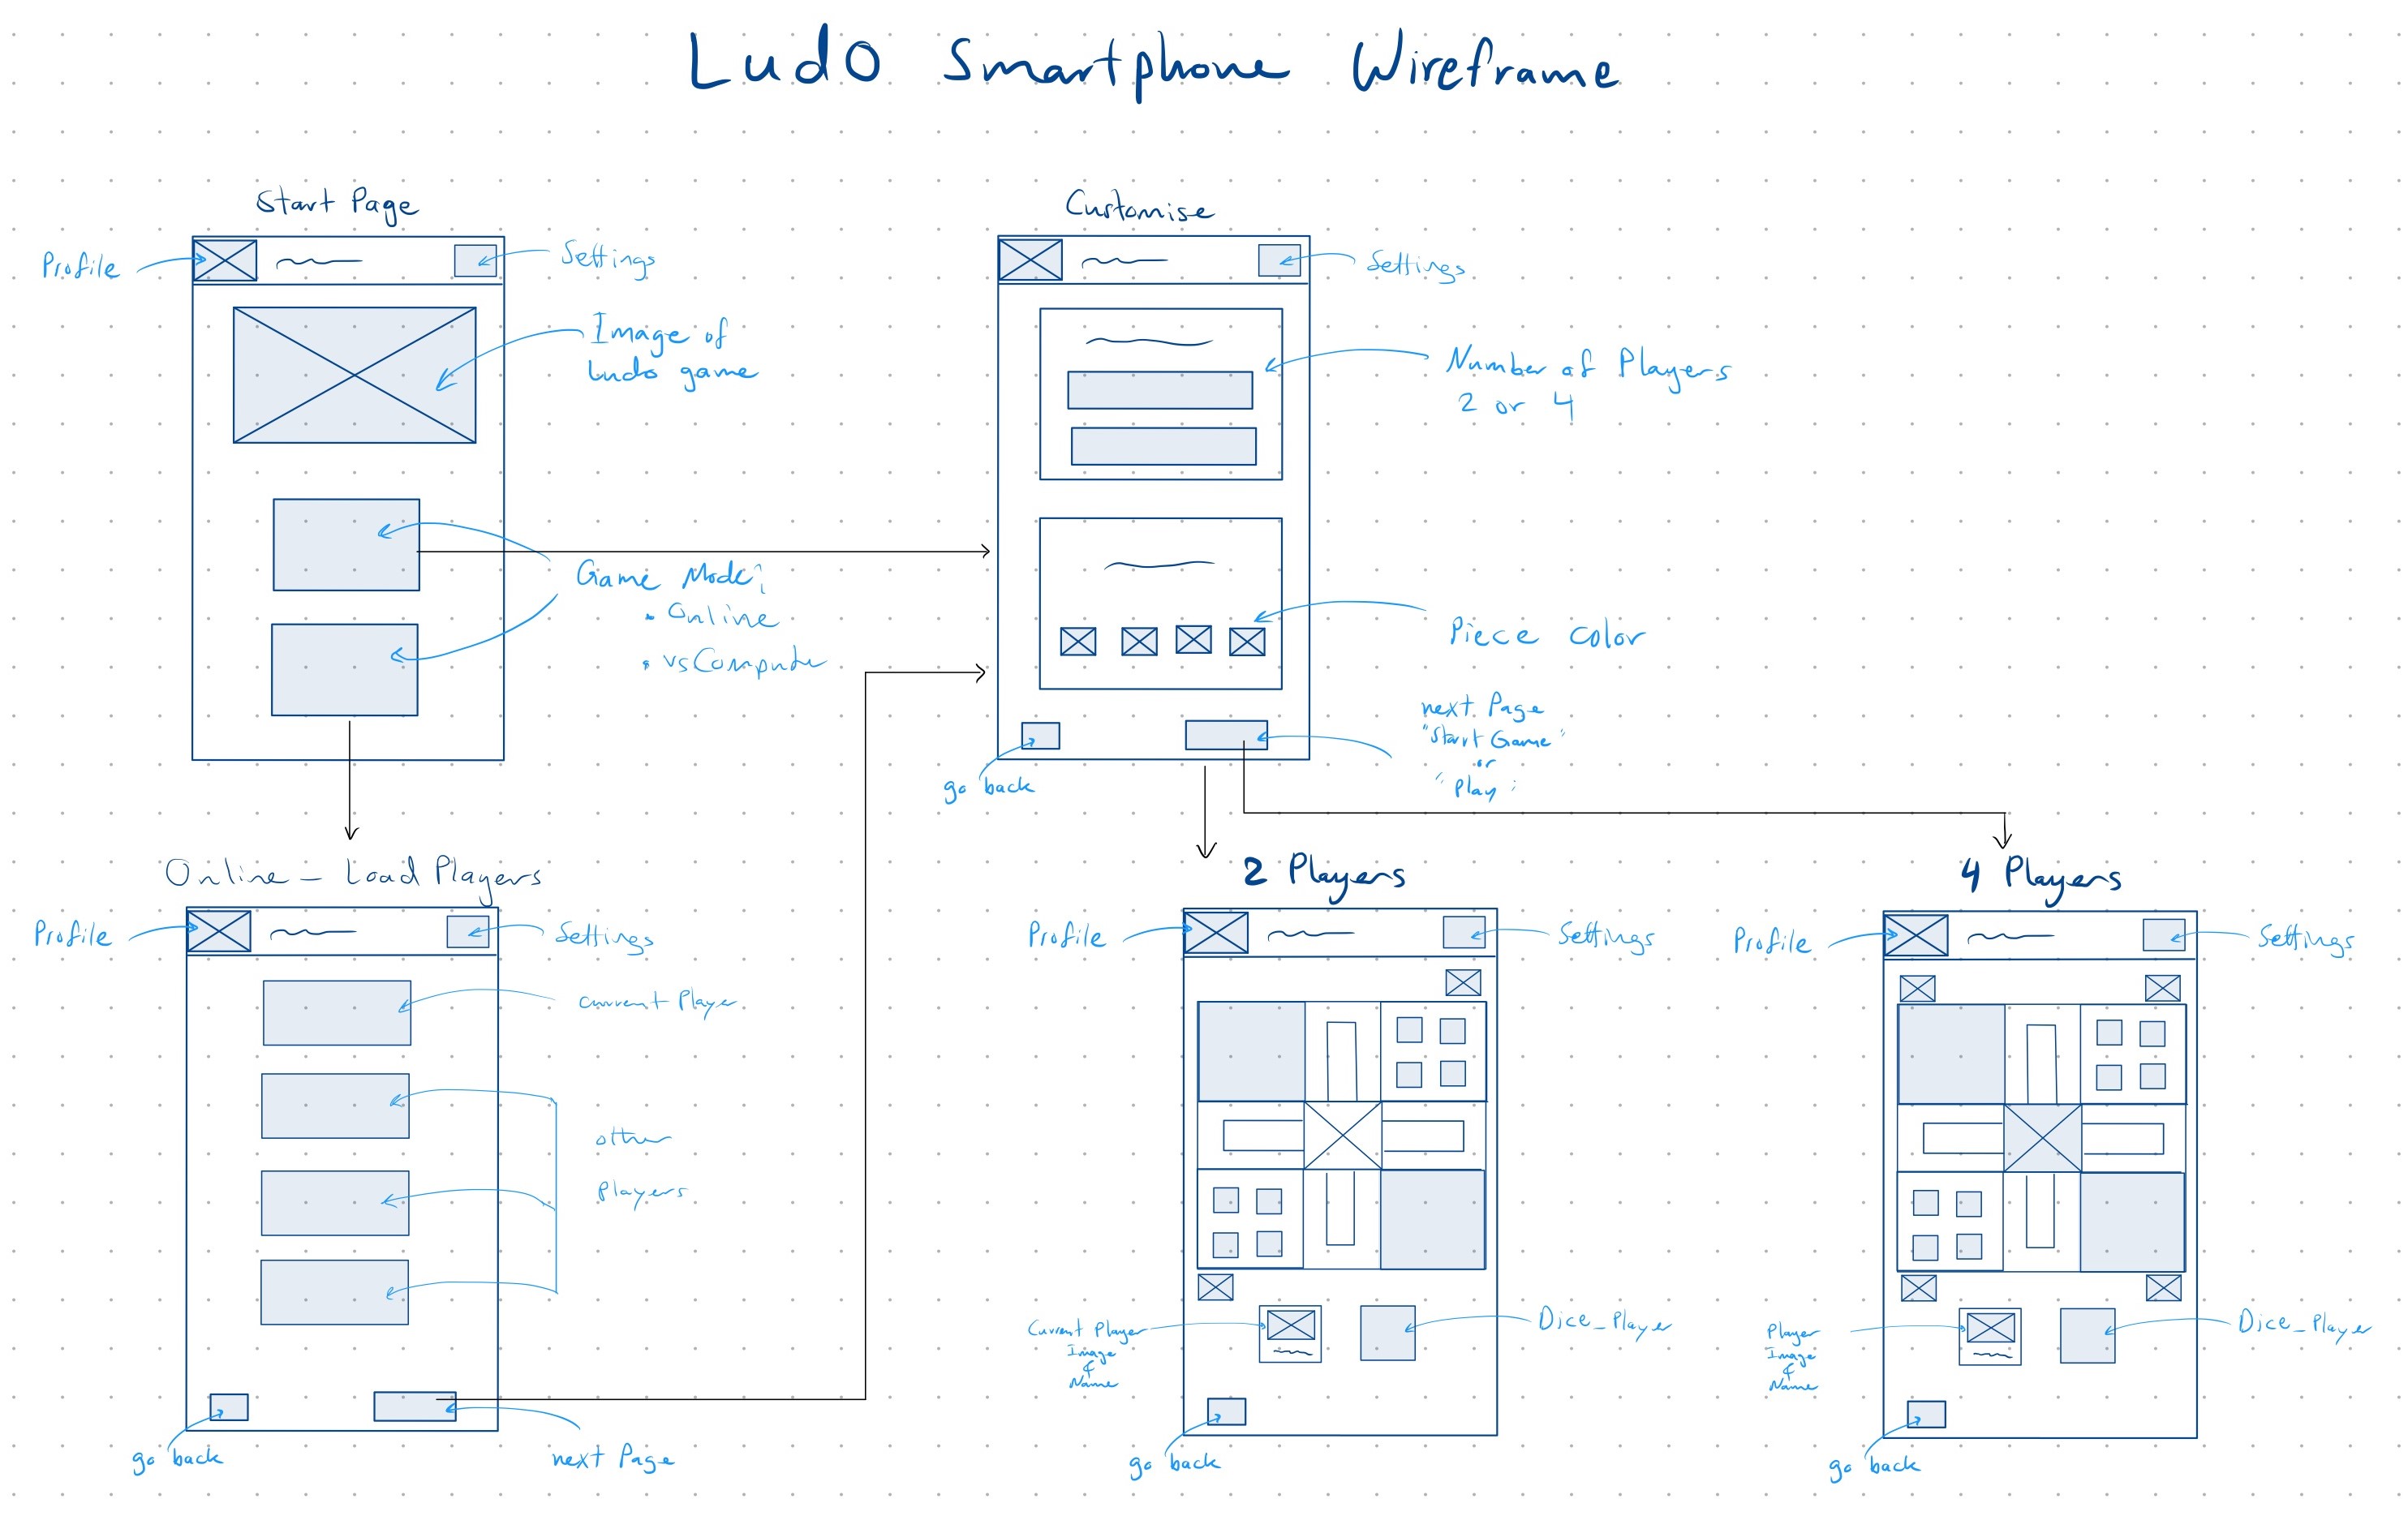 Ludo Smartphone Wireframe
Start Page
Profile
Settings
Image of
Ludo game
Game Mode:
• Online
• vs Computer
Customise
Settings
Number of Players
2 or 4
Piece Color
next Page
"Start Game"
or
"Play"
go back
Online - Load Players
Profile
Settings
current Player
other
Players
go back
next Page
2 Players
Profile
Settings
Current Player
Image
&
Name
Dice_Player
go back
4 Players
Profile
Settings
Player
Image
&
Name
Dice_Player
go back